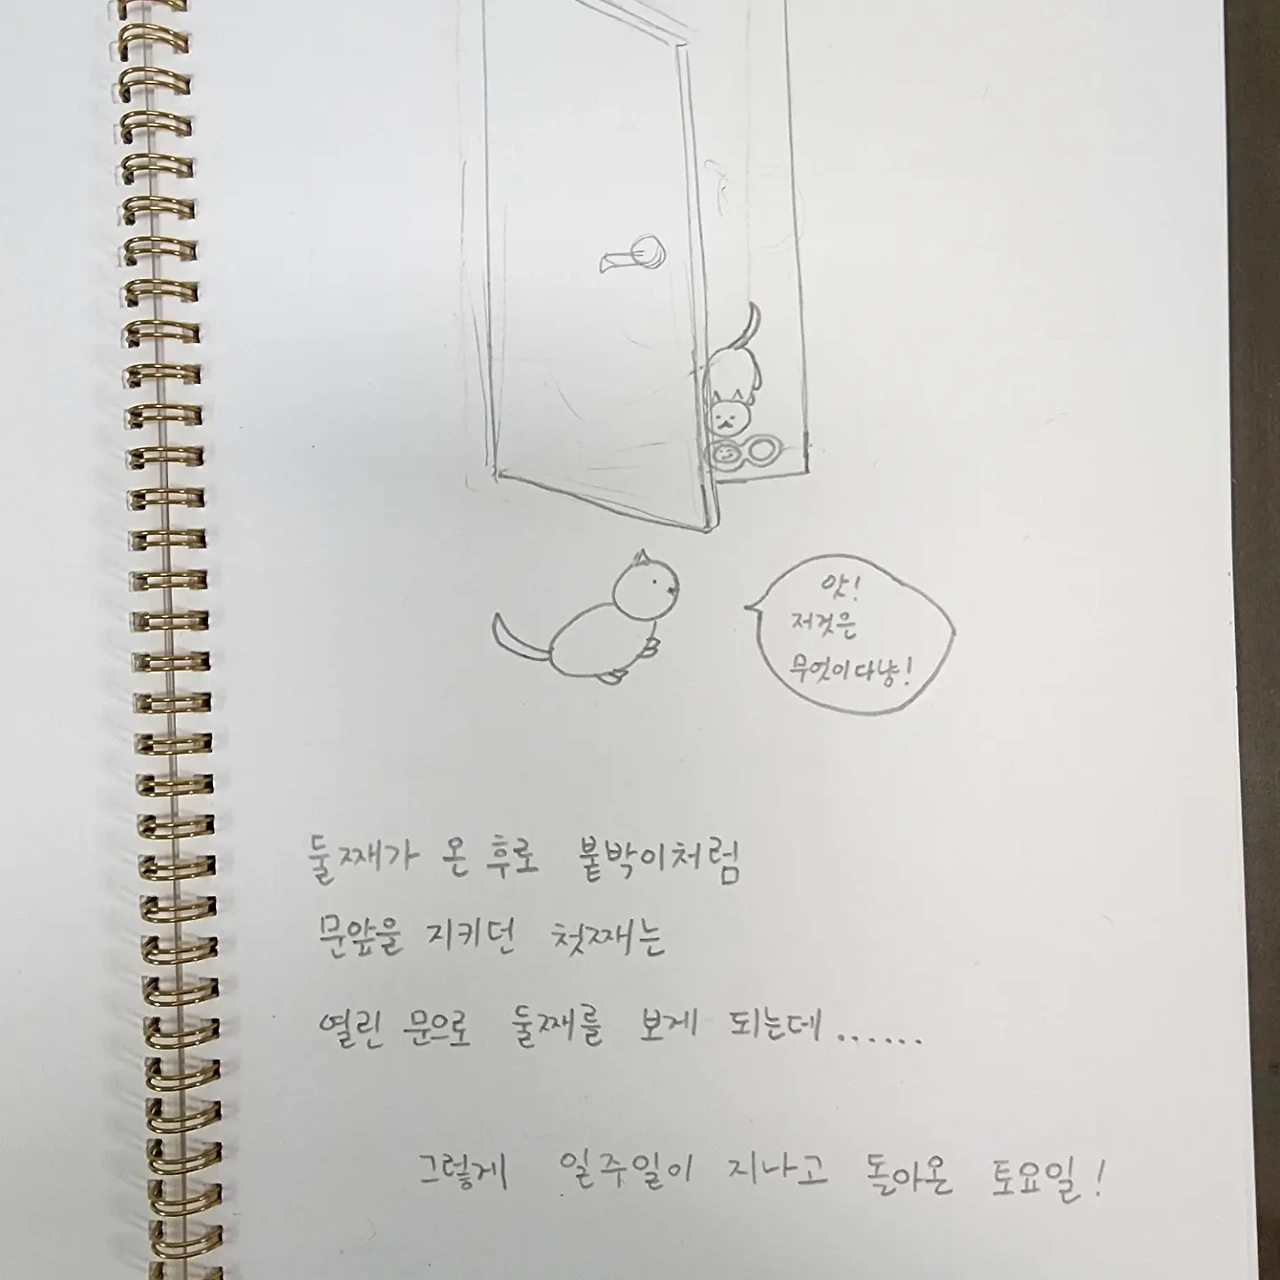 앗!
저것은
무엇이다냥!
둘째가 온 후로 붙박이처럼
문앞을 지키던 첫째는
열린 문으로 둘째를 보게 되는데......
그렇게 일주일이 지나고 돌아온 토요일!